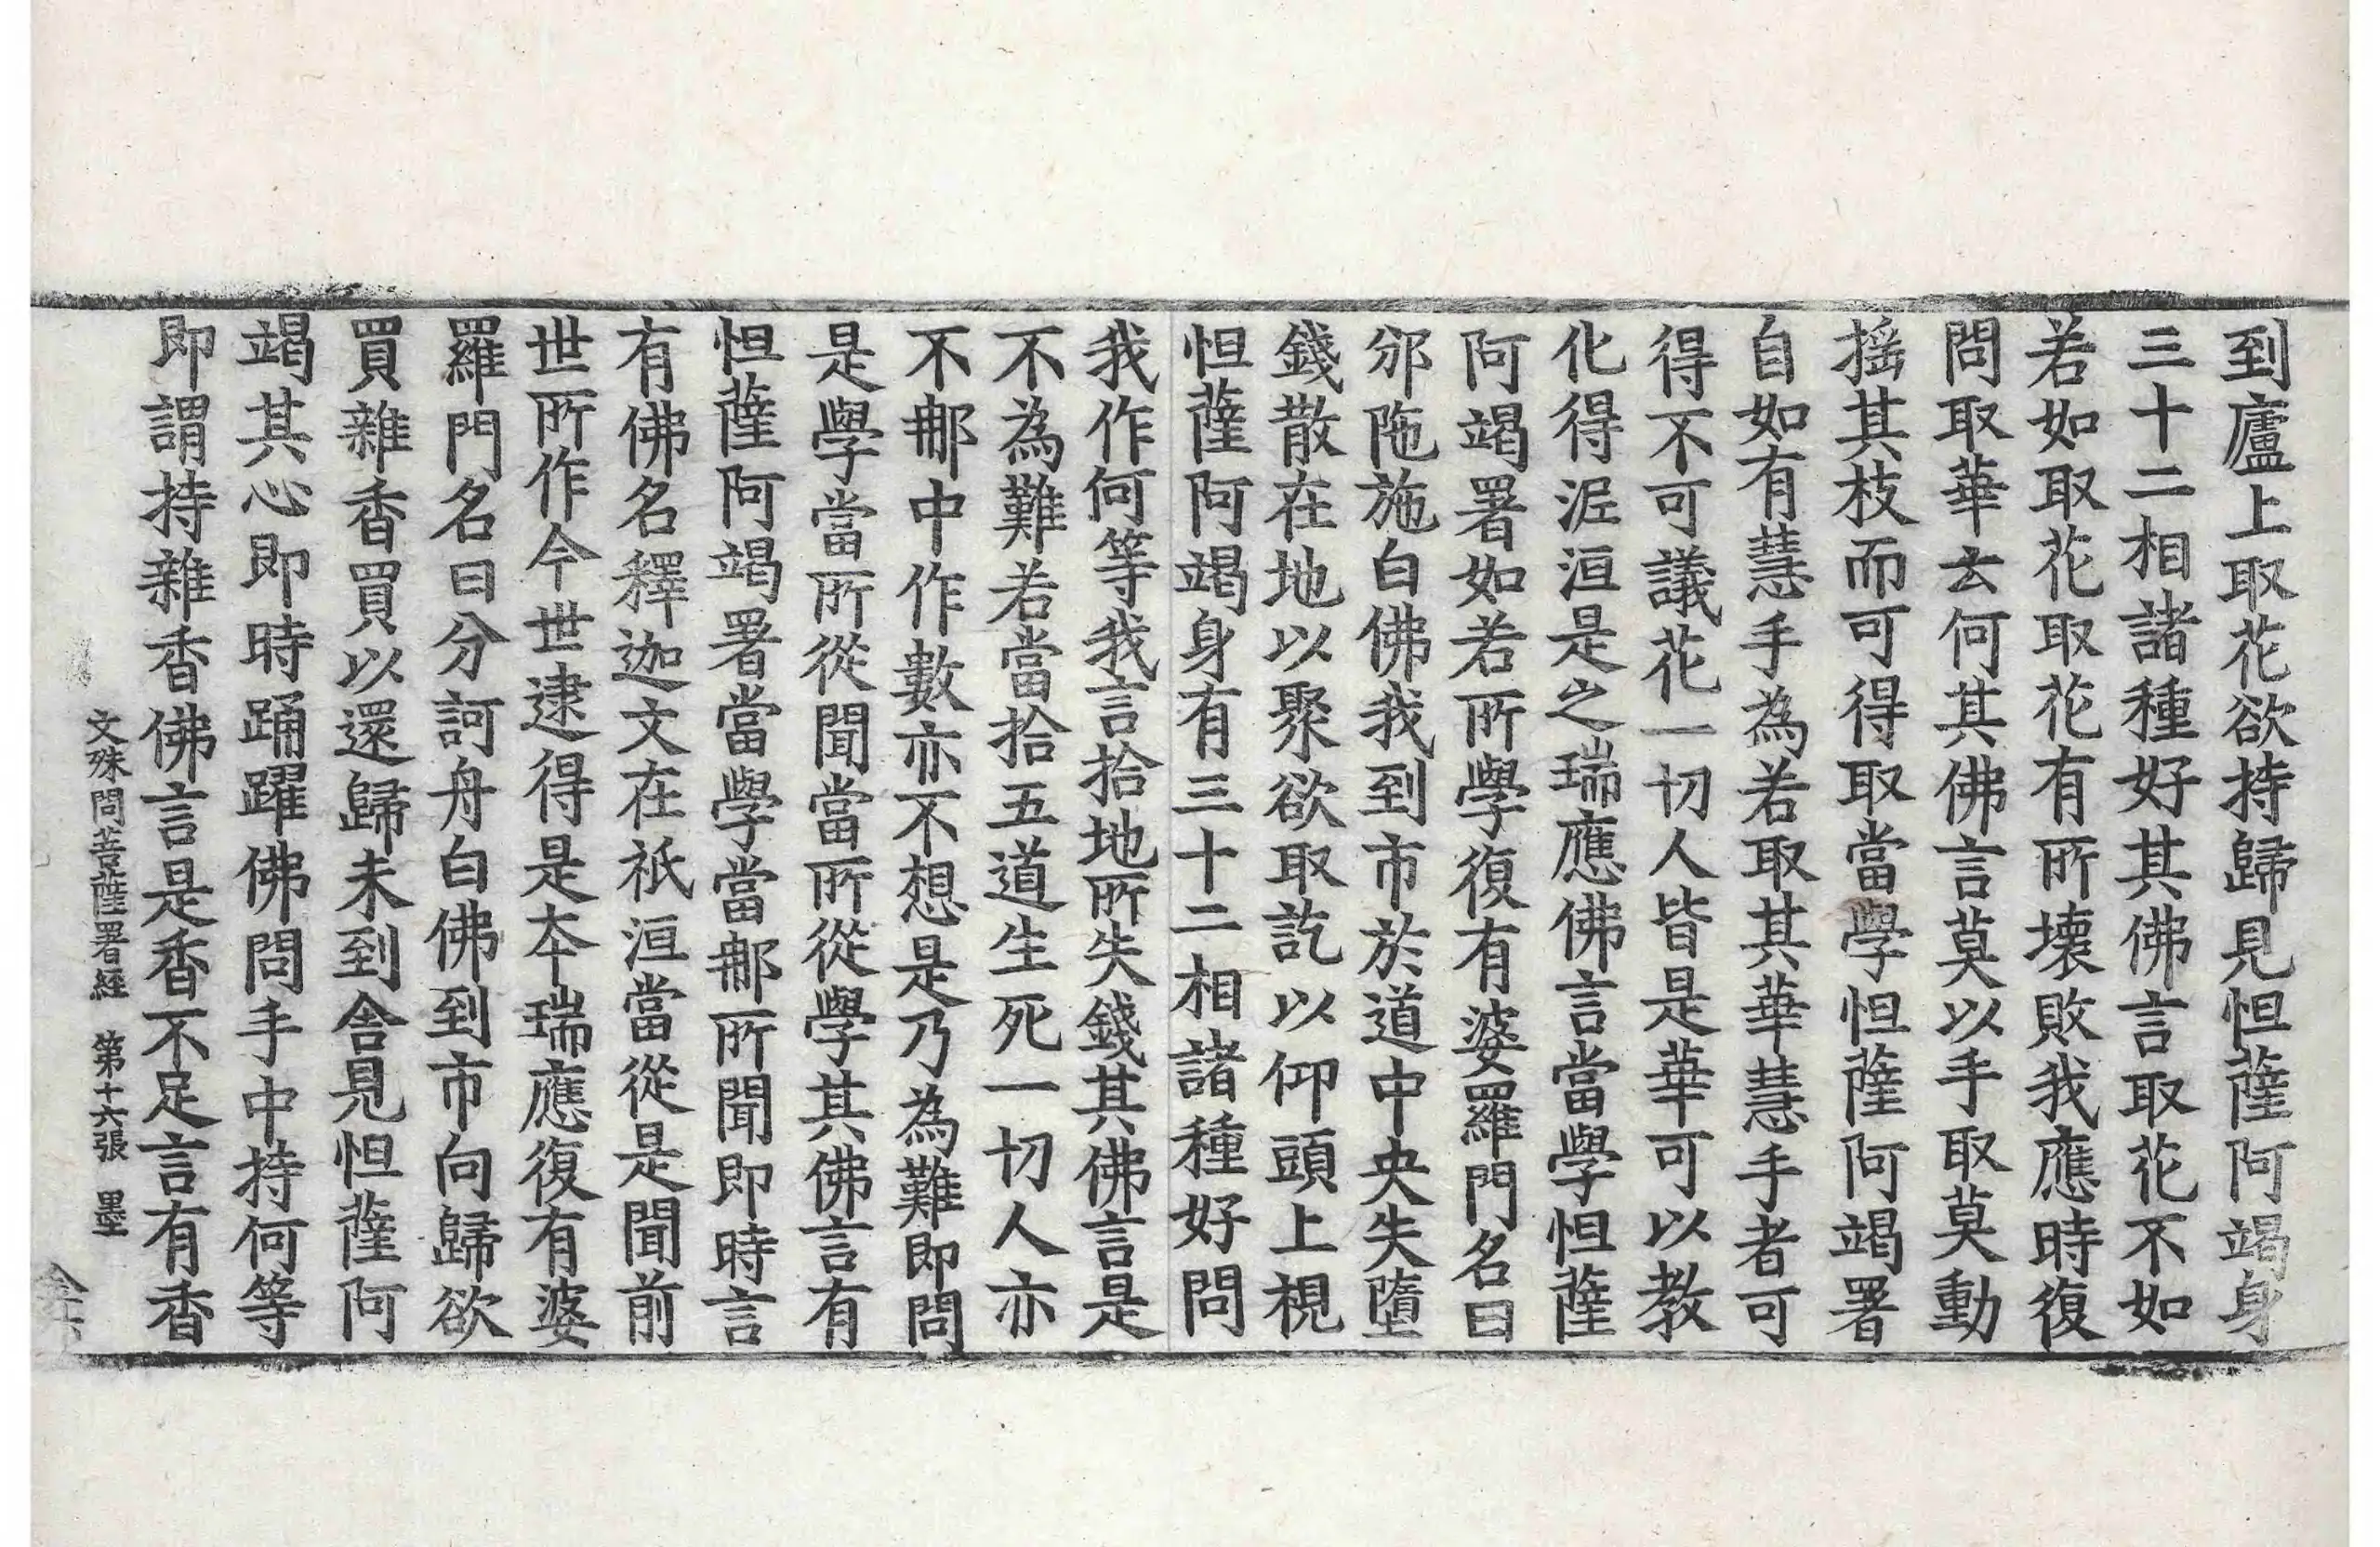 到廬上取花欲持歸見怛薩阿竭身
三十二相諸種好其佛言取花不如
若如取花取花有所壞敗我應時復
問取華云何其佛言莫以手取莫動
搖其枝而可得取當學怛薩阿竭署
自如有慧手為若取其華慧手者可
得不可議花一切人皆是華可以教
化得泥洹是之瑞應佛言當學怛薩
阿竭署如若所學復有婆羅門名曰
邠陁施白佛我到市於道中央失墮
錢散在地以聚欲取訖以仰頭上視
怛薩阿竭身有三十二相諸種好問
我作何等我言拾地所失錢其佛言是
不為難若當拾五道生死一切人亦
不那中作數亦不想是乃為難即問
是學當所從聞當所從學其佛言有
怛薩阿竭署當學當那所聞即時言
有佛名釋迦文在祇洹當從是聞前
世所作今世逮得是本瑞應復有婆
羅門名曰分訶舟白佛到市向歸欲
買雜香買以還歸未到舍見怛薩阿
竭其心即時踊躍佛問手中持何等
即謂持雜香佛言是香不足言有香
文殊問菩薩署經 第十六張 墨